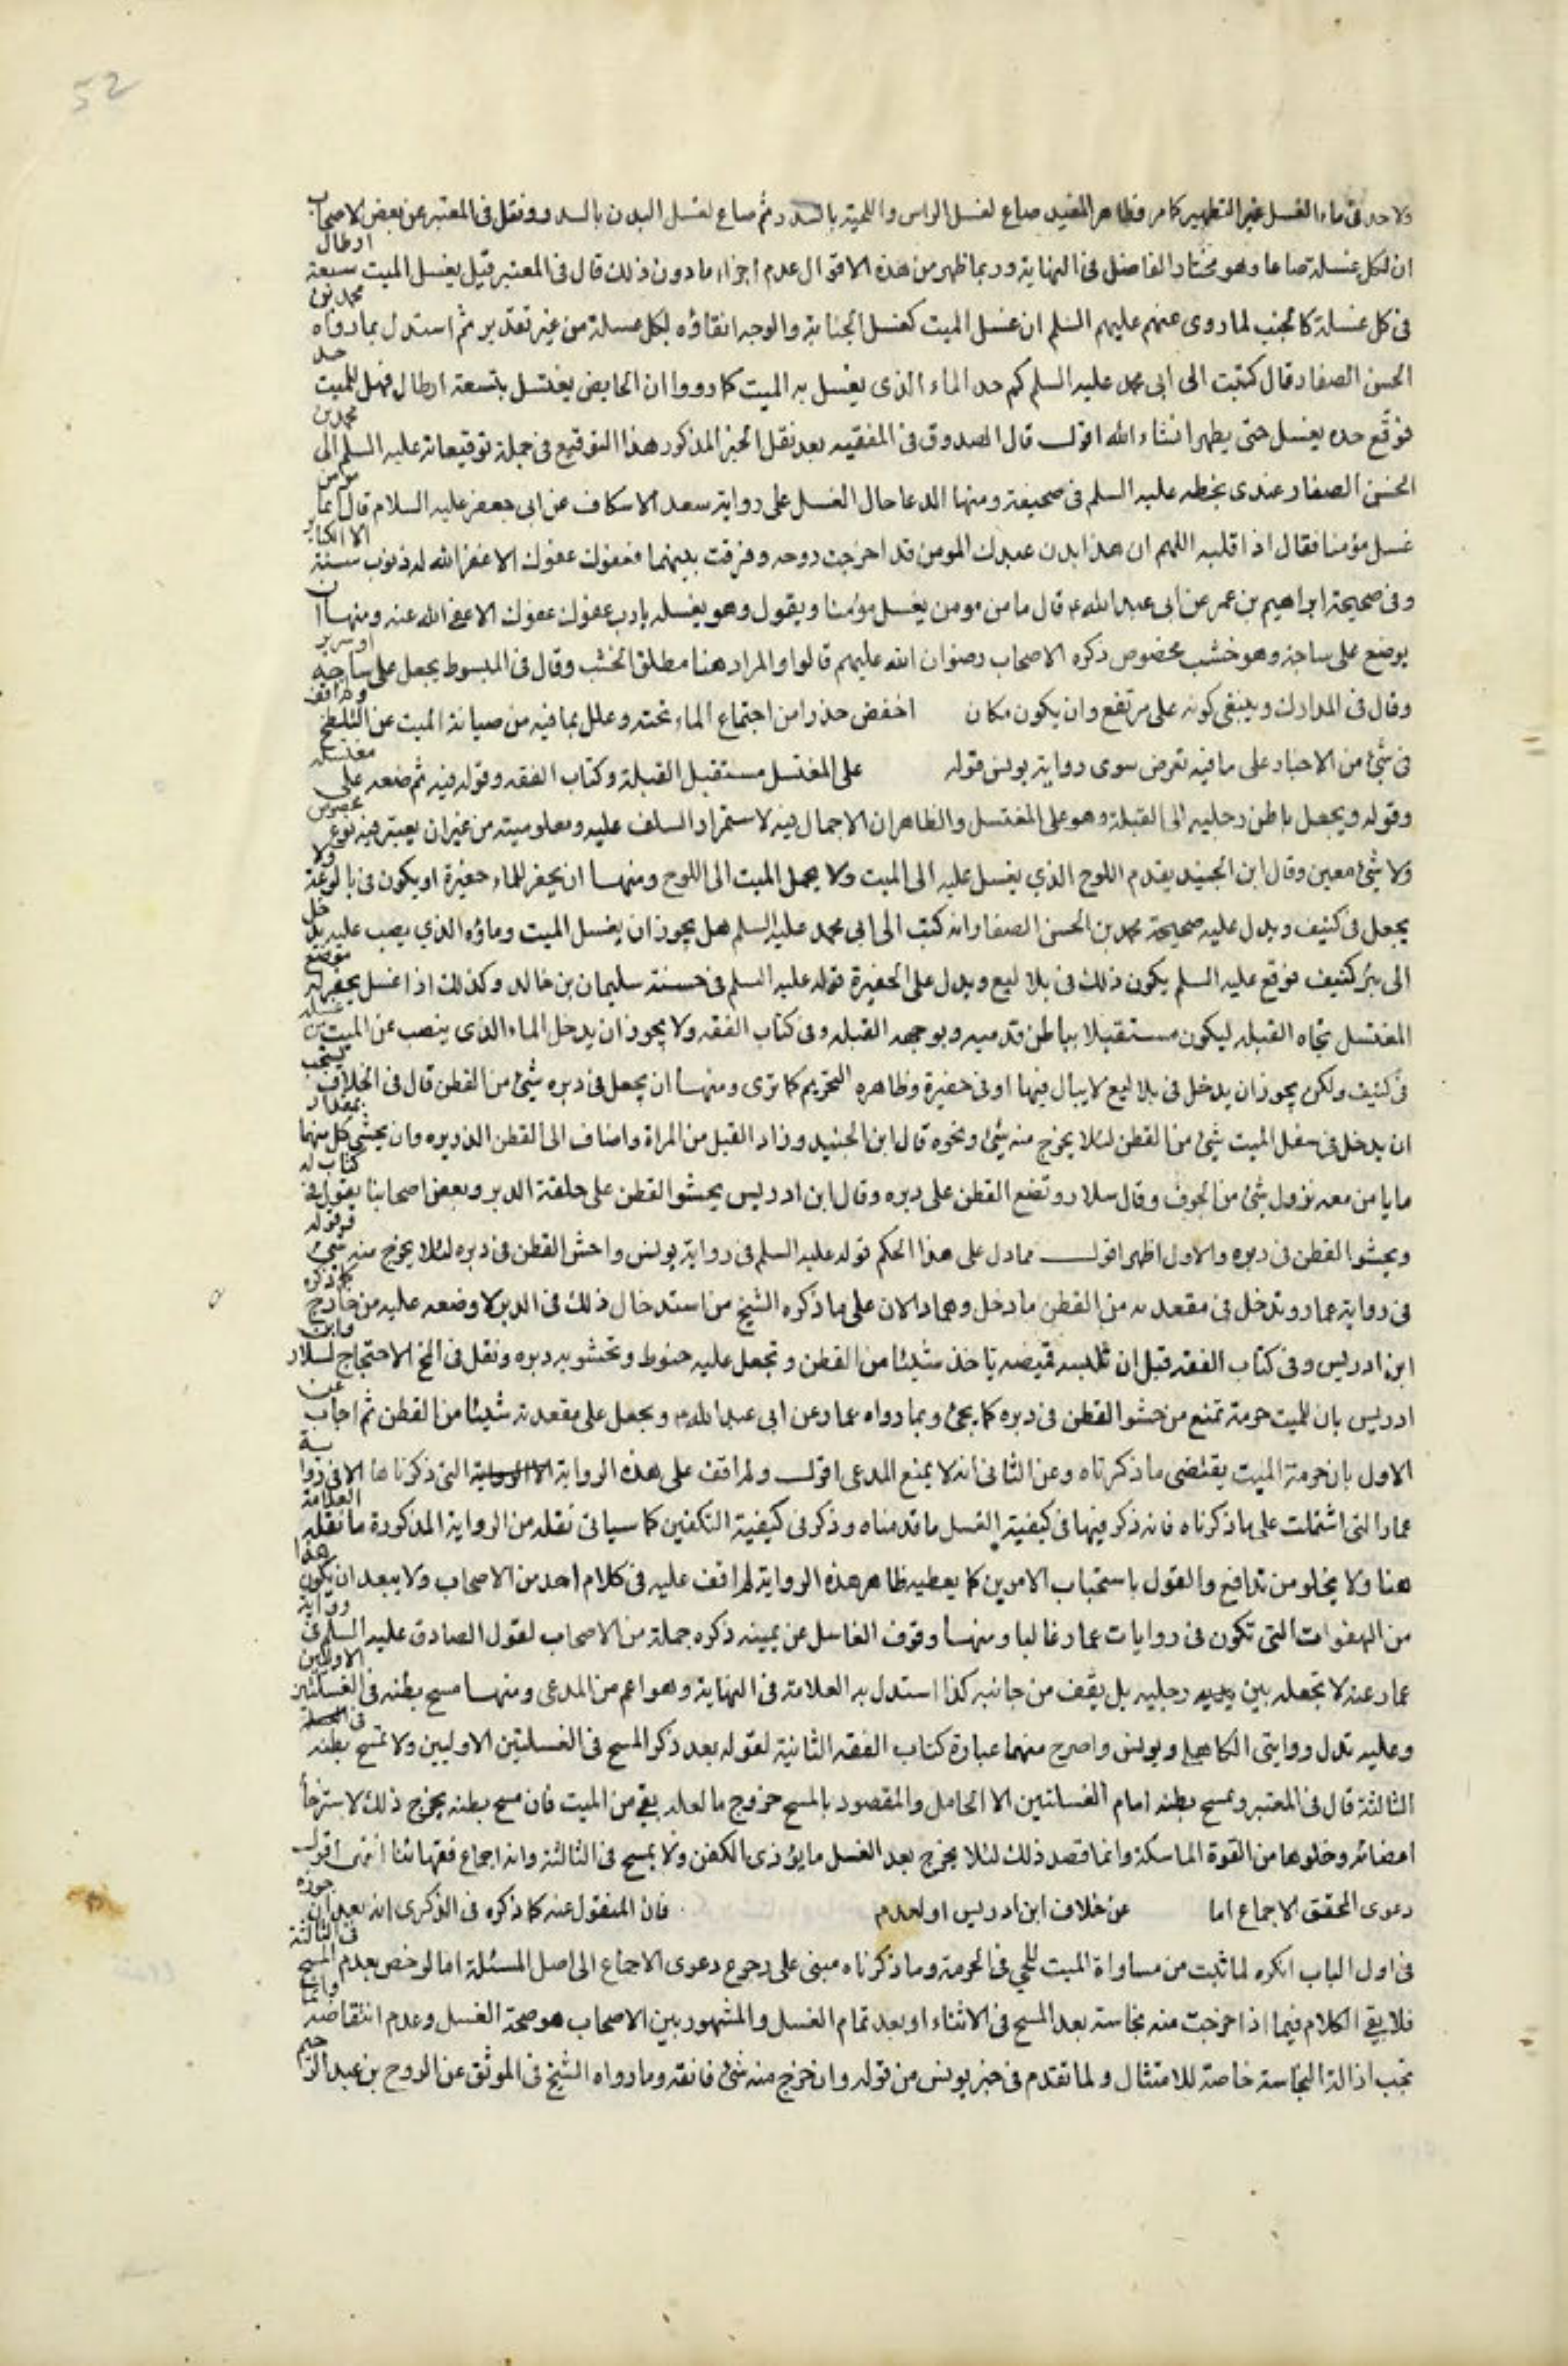 52
ولا حد فى ماء الغسل غير التطهير كما مر وظاهر المفيد صاع لغسل الراس واللحية بالسدر ثم صاع لغسل البدن بالسدر ونقل فى المعتبر عن بعض الاصحاب
ان لكل غسلة صاعا وهو مختار الفاضل فى النهاية وربما ظهر من هذه الاقوال عدم اجزاء مادون ذلك قال فى المعتبر قيل يغسل الميت سبعة ارطال
فى كل غسلة كالجنب لما روى عنهم عليهم السلم ان غسل الميت كغسل الجنابة والوجه انقاؤه لكل غسلة من غير تقدير ثم استدل بما رواه محمد بن
الحسن الصفار قال كتبت الى ابى محمد عليه السلم كم حد الماء الذى يغسل به الميت كما رووا ان الحايض يغتسل بتسعة ارطال فهل للميت حد
فوقّع حده يغسل حتى يطهر انشاء الله اقول قال الصدوق فى الفقيه بعد نقل الخبر المذكور هذا التوقيع فى جملة توقيعاته عليه السلم الى محمد بن
الحسن الصفار عندى بخطه عليه السلم فى صحيفة ومنها الدعا حال الغسل على رواية سعد الاسكاف عن ابى جعفر عليه السلام قال ايما مؤمن
غسل مؤمنا فقال اذا قلبه اللهم ان هذا بدن عبدك المومن قد اخرجت روحه وفرقت بينهما فعفوك عفوك الا غفر الله له ذنوب سنة الا الكبائر
وفى صحيحة ابراهيم بن عمر عن ابى عبد الله ع قال ما من مومن يغسل مؤمنا ويقول وهو يغسله يا رب عفوك عفوك الا عفى الله عنه ومنها ان
يوضع على ساجة وهو خشب مخصوص ذكره الاصحاب رضوان الله عليهم قالوا والمراد هنا مطلق الخشب وقال فى المبسوط يجعل على ساجه او سرير
وقال فى المدارك وينبغى كونه على مرتفع وان يكون مكان اخفض حذرا من اجتماع الماء تحته وعلل بما فيه من صيانة الميت عن التلطخ ولم اقف
فى شئ من الاخبار على ما فيه تعرض سوى رواية يونس قوله على المغتسل مستقبل القبلة وكتاب الفقه وقوله فيه ثم ضعه على مغتسله
وقوله ويجعل باطن رجليه الى القبلة وهو على المغتسل والظاهر ان الاجمال فيه لاستمرار السلف عليه ومعلوميته من غير ان يعتبر فيه نوع مخصوص
ولا شئ معين وقال ابن الجنيد يقدم اللوح الذي يغسل عليه الى الميت ولا يحمل الميت الى اللوح ومنها ان يحفر للماء حفيرة او يكون فى بالوعة ولا
يجعل فى كنيف ويدل عليه صحيحة محمد بن الحسن الصفار انه كتب الى ابى محمد عليه السلم هل يجوز ان يغسل الميت وماؤه الذي يصب عليه يدخل
الى بئر كنيف فوقع عليه السلم يكون ذلك فى بلاليع ويدل على الحفيرة قوله عليه السلم فى حسنة سليمان بن خالد وكذلك اذا غسل يحفر له موضع
المغتسل تجاه القبله ليكون مستقبلا بباطن قدميه وبوجهه القبله وفى كتاب الفقه ولا يجوز ان يدخل الماء الذى ينصب عن الميت من غسله
فى كنيف ولكن يجوز ان يدخل فى بلاليع لا يبال فيها او فى حفيرة وظاهره التحريم كما ترى ومنها ان يجعل فى دبره شئ من القطن قال فى الخلاف يستحب
ان يدخل فى سفل الميت شئ من القطن لئلا يخرج منه شئ ونحوه قال ابن الجنيد وزاد القبل من المراة واضاف الى القطن الذريره وان يحشى كل منهما بمقدار
ما يامن معه نزول شئ من الجوف وقال سلار وتضع القطن على دبره وقال ابن ادريس يحشوا القطن على حلقة الدبر وبعض اصحابنا يقول فى كتاب له
ويحشوا القطن فى دبره والاول اظهر اقول مما دل على هذا الحكم قوله عليه السلم فى رواية يونس واحش القطن فى دبره لئلا يخرج منه شئ وقوله
فى رواية عمار وتدخل فى مقعدته من القطن ما دخل وهما دالان على ما ذكره الشيخ من استدخال ذلك فى الدبر لا وضعه عليه من خارج كما ذكره
ابن ادريس وفى كتاب الفقه قبل ان تلبسه قميصه ياخذ شيئا من القطن وتجعل عليه حنوط وتحشو به دبره ونقل فى المخ الاحتجاج لسلار وابن
ادريس بان للميت حرمة تمنع من حشو القطن فى دبره كما يجئ وبما رواه عمار عن ابى عبد الله ع ويجعل على مقعدته شيئا من القطن ثم اجاب عن
الاول بان حرمة الميت يقتضى ما ذكرناه وعن الثانى انه لا يمنع المدعى اقول ولم اقف على هذه الرواية التى ذكرناها الا فى رواية
عمار التى اشتملت على ما ذكرناه فانه ذكر فيها فى كيفية الغسل ما قدمناه وذكر فى كيفية التكفين كما سياتى نقله من الرواية المذكورة ما نقله العلامة
هنا ولا يخلو من تدافع والقول باستحباب الامرين كما يعطيه ظاهر هذه الرواية لم اقف عليه فى كلام احد من الاصحاب ولا يبعد ان يكون هذا
من الهفوات التى تكون فى روايات عمار غالبا ومنها وقوف الغاسل عن يمينه ذكره جملة من الاصحاب لقول الصادق عليه السلم فى رواية
عمار عنه لا تجعله بين رجليه بل يقف من جانبه كذا استدل به العلامة فى النهاية وهو اعم من المدعى ومنها مسح بطنه فى الغسلتين الاوليين
وعليه تدل روايتى الكاهلى ويونس واصرح منهما عبارة كتاب الفقه الثانية لقوله بعد ذكر المسح فى الغسلتين الاوليين ولا تمسح بطنه فى
الثالثة قال فى المعتبر ويمسح بطنه امام الغسلتين الا الحامل والمقصود بالمسح خروج ما لعله بقى من الميت فان مسح بطنه يخرج ذلك لاسترخاء
اعضائه وخلوها من القوة الماسكة وانما قصد ذلك لئلا يخرج بعد الغسل ما يؤذى الكفن ولا يمسح فى الثالثة وانه اجماع فقهائنا انتهى اقول
دعوى المحقق الاجماع اما عن خلاف ابن ادريس او لعدم فان المنقول عنه كما ذكره فى الذكرى انه بعد ان جوزه
فى اول الباب انكره لما ثبت من مساواة الميت للحي فى الحرمة وما ذكرناه مبنى على رجوع دعوى الاجماع الى اصل المسئلة اما لو خص بعدم المسح فى الثالثة
فلا يبقى الكلام فيما اذا خرجت منه نجاسة بعد المسح فى الاثناء او بعد تمام الغسل والمشهور بين الاصحاب هو صحة الغسل وعدم انتقاضه وانما
تجب ازالة النجاسة خاصة للامتثال ولما تقدم فى خبر يونس من قوله وان خرج منه شئ فانقه وما رواه الشيخ فى الموثق عن الروح بن عبد الرحيم